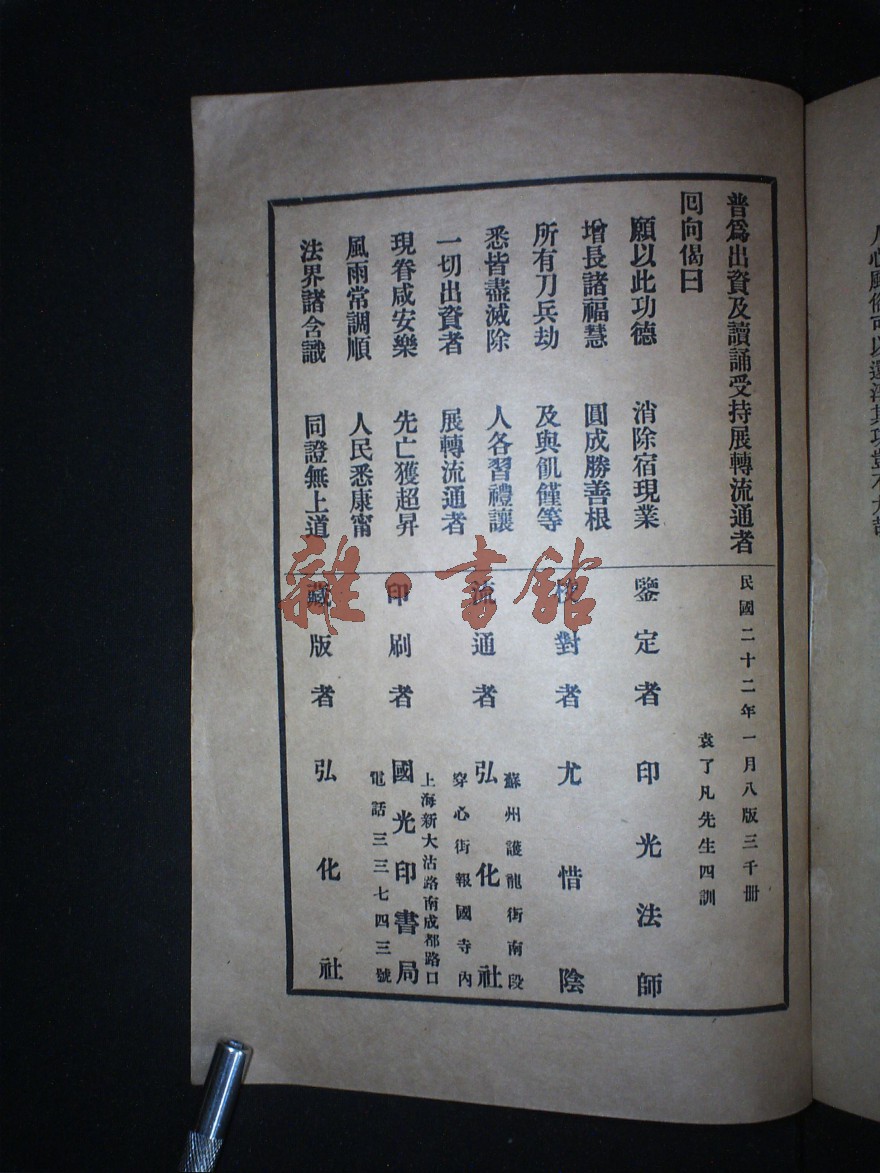 普爲出資及讀誦受持展轉流通者
囘向偈曰
願以此功德 消除宿現業
增長諸福慧 圓成勝善根
所有刀兵劫 及與飢饉等
悉皆盡滅除 人各習禮讓
一切出資者 展轉流通者
現眷咸安樂 先亡獲超昇
風雨常調順 人民悉康甯
法界諸含識 同證無上道
民國二十二年一月八版三千册
袁了凡先生四訓
鑒定者印光法師
校對者尤惜陰
蘇州護龍街南段
流通者弘化社
穿心街報國寺內
上海新大沽路南成都路口
印刷者國光印書局
電話三三七四三號
藏版者弘化社
雜·書館